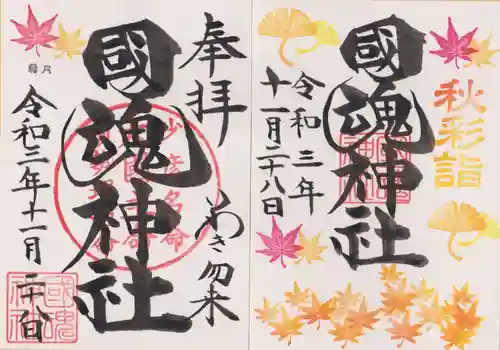 奉拝
いわき勿来
國魂神社
霜月
令和三年十一月二十八日
秋彩詣
國魂神社
令和三年
十一月二十八日